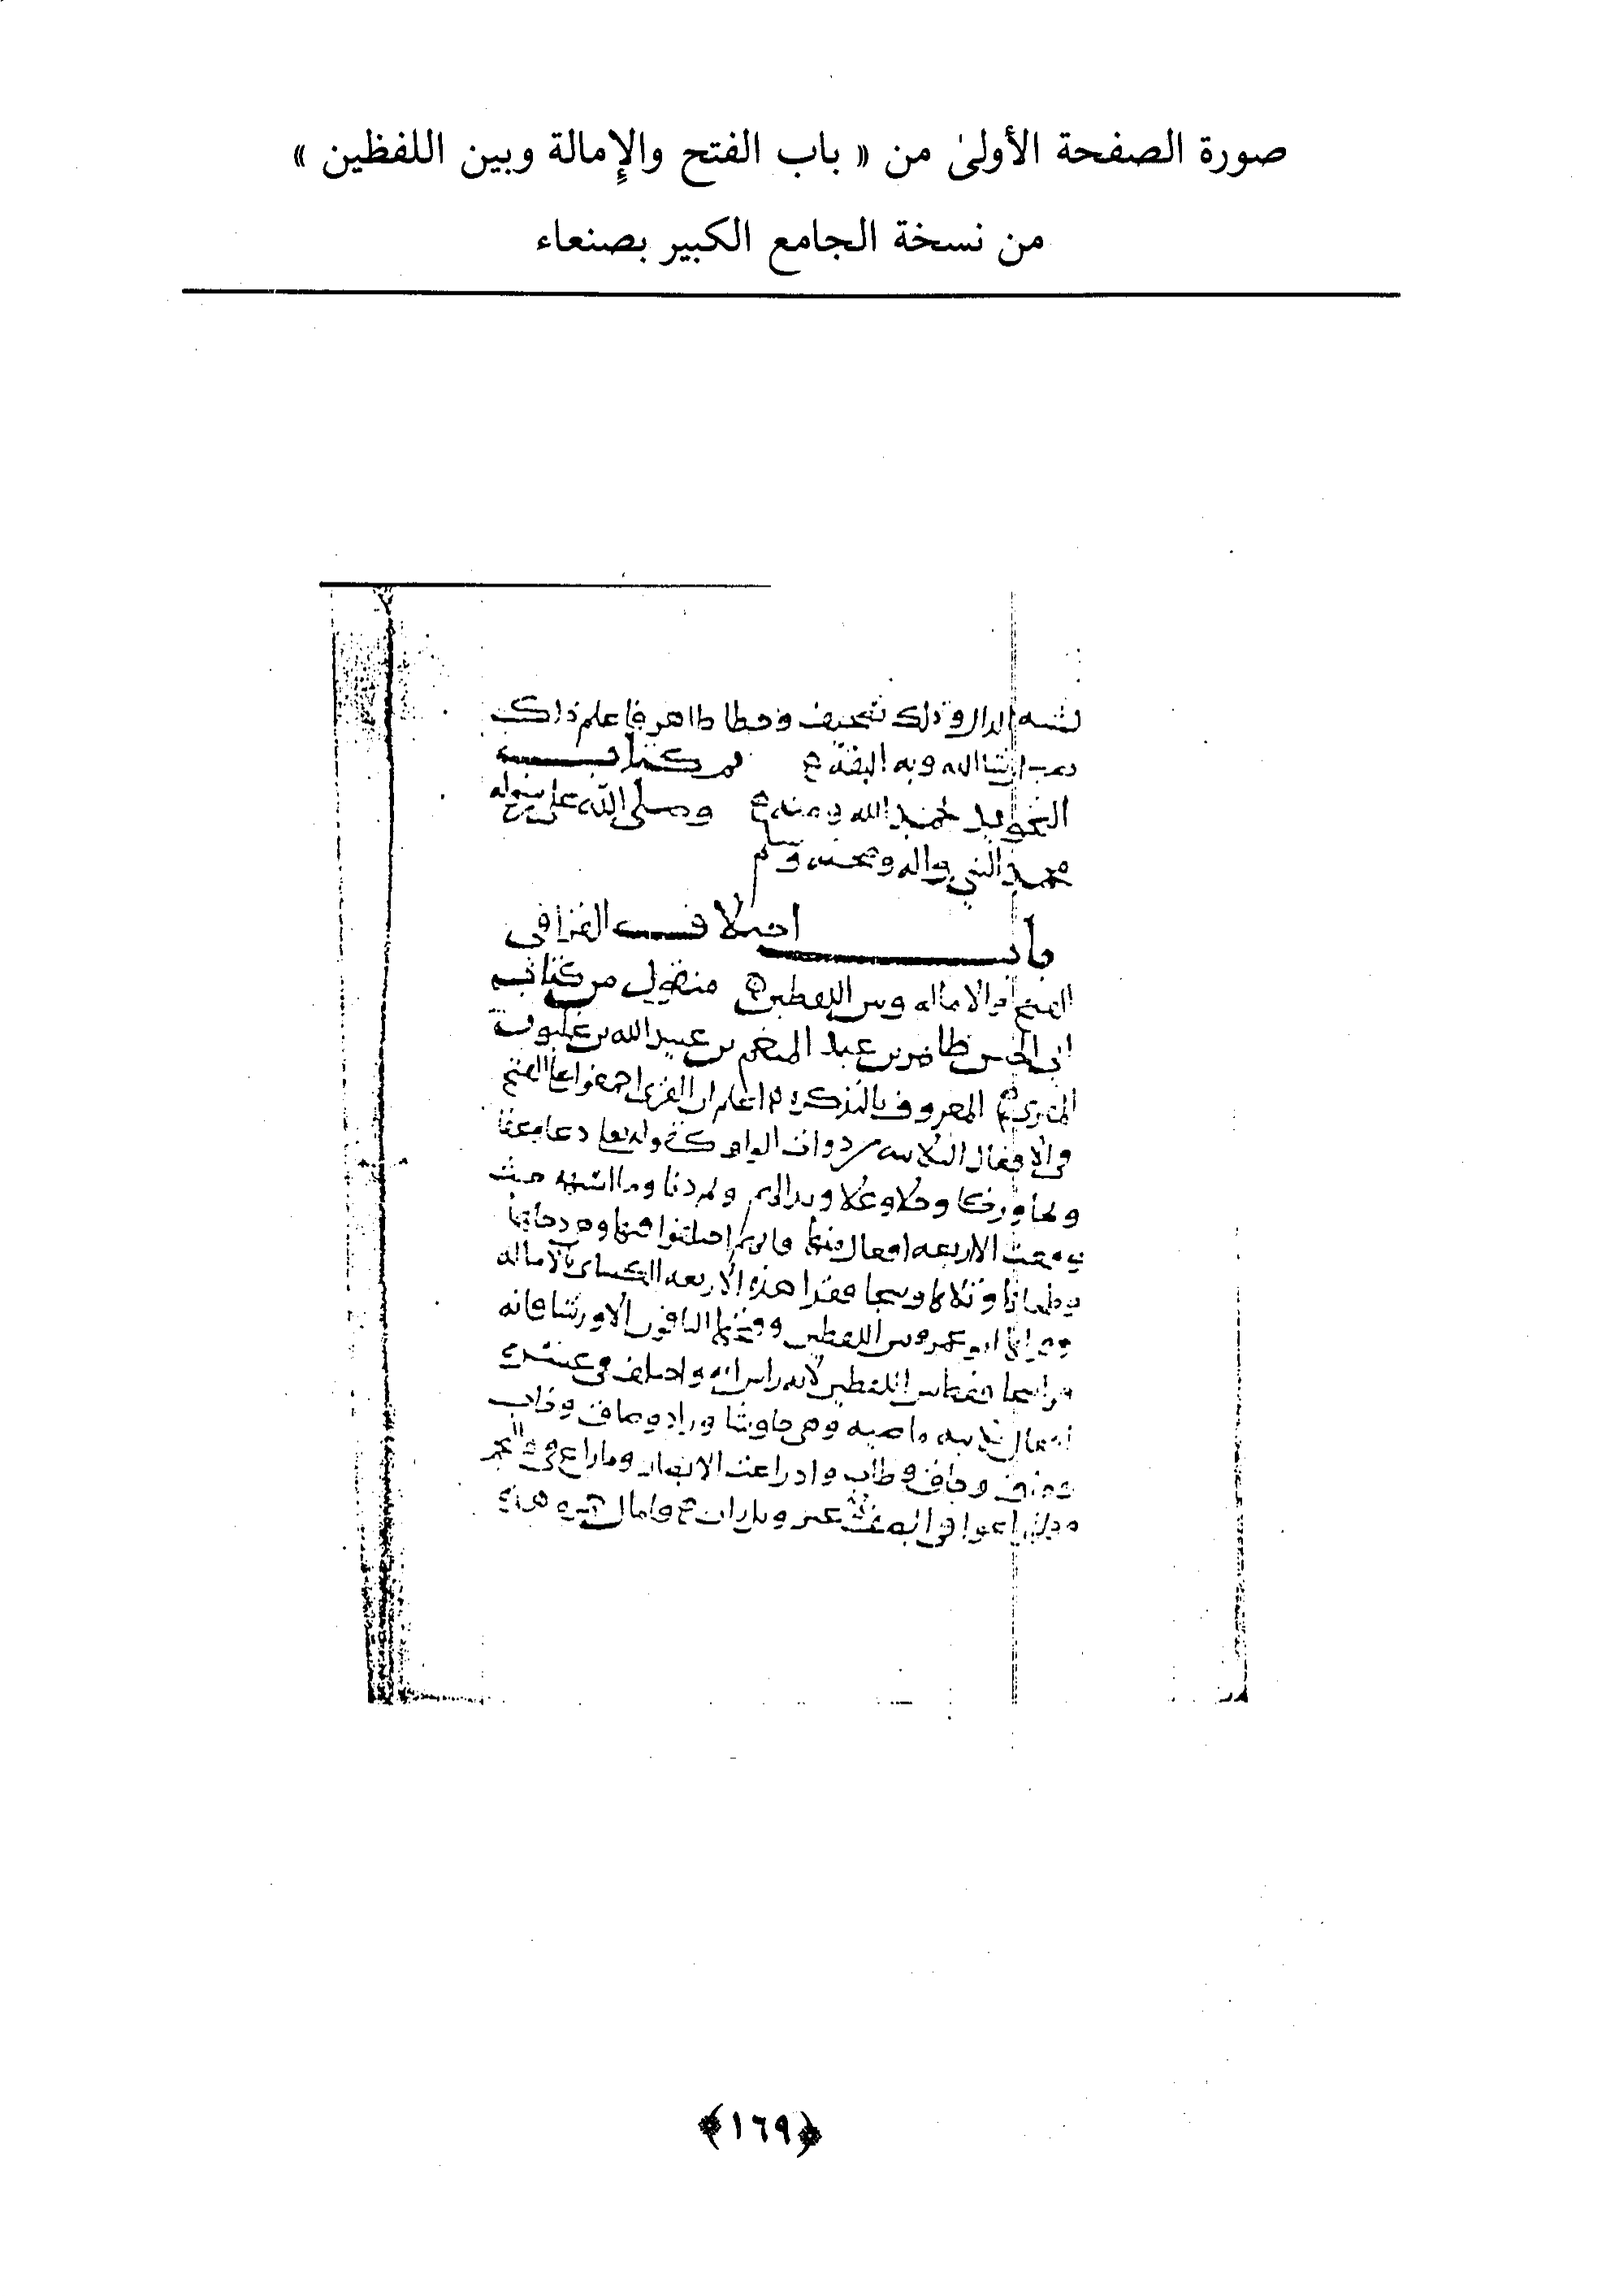 صورة الصفحة الأولىٰ من « باب الفتح والإمالة وبين اللفظين »
من نسخة الجامع الكبير بصنعاء
الدال وذلك تصحيف وخطا ظاهر فاعلم ذلك
ان شا الله وبه الثقة تم كتاب
التجويد بحمد الله ومنه وصلى الله على رسوله
محمد النبي واله وصحبه وسلم
باب اختلاف القرا في
الفتح والاماله وبين اللفظين منقول من كتاب
ابي الحسن طاهر بن عبد المنعم بن عبيد الله بن غلبون
المقري المعروف بالتذكره اعلم ان القرا اجمعوا على الفتح
في الافعال الثلاثيه من ذوات الواو دعا وعفا
ونجا وخلا وعلا وبدا لهم ودنا وما اشبهه حيث
وقعت الا اربعه افعال منها فانهم اختلفوا فيها وهي دحاها
وطحاها وتلاها وسجا فقرا هذه الاربعه الكسائي بالاماله
وقراها ابو عمرو بين اللفظين وفتحها الباقون الا ورشا فانه
قرا سجا فقط بين اللفظين لانه راس ايه واختلف في عشره
افعال ثلاثيه ماضيه وهي جا وشا وزاد وضاق وخاب
وحاق وخاف وطاب واذ زاغت الابصار وما زاغ في والنجم
وفلما زاغوا في الصف وبل ران وامال حمزه هذه
﴿١٦٩﴾